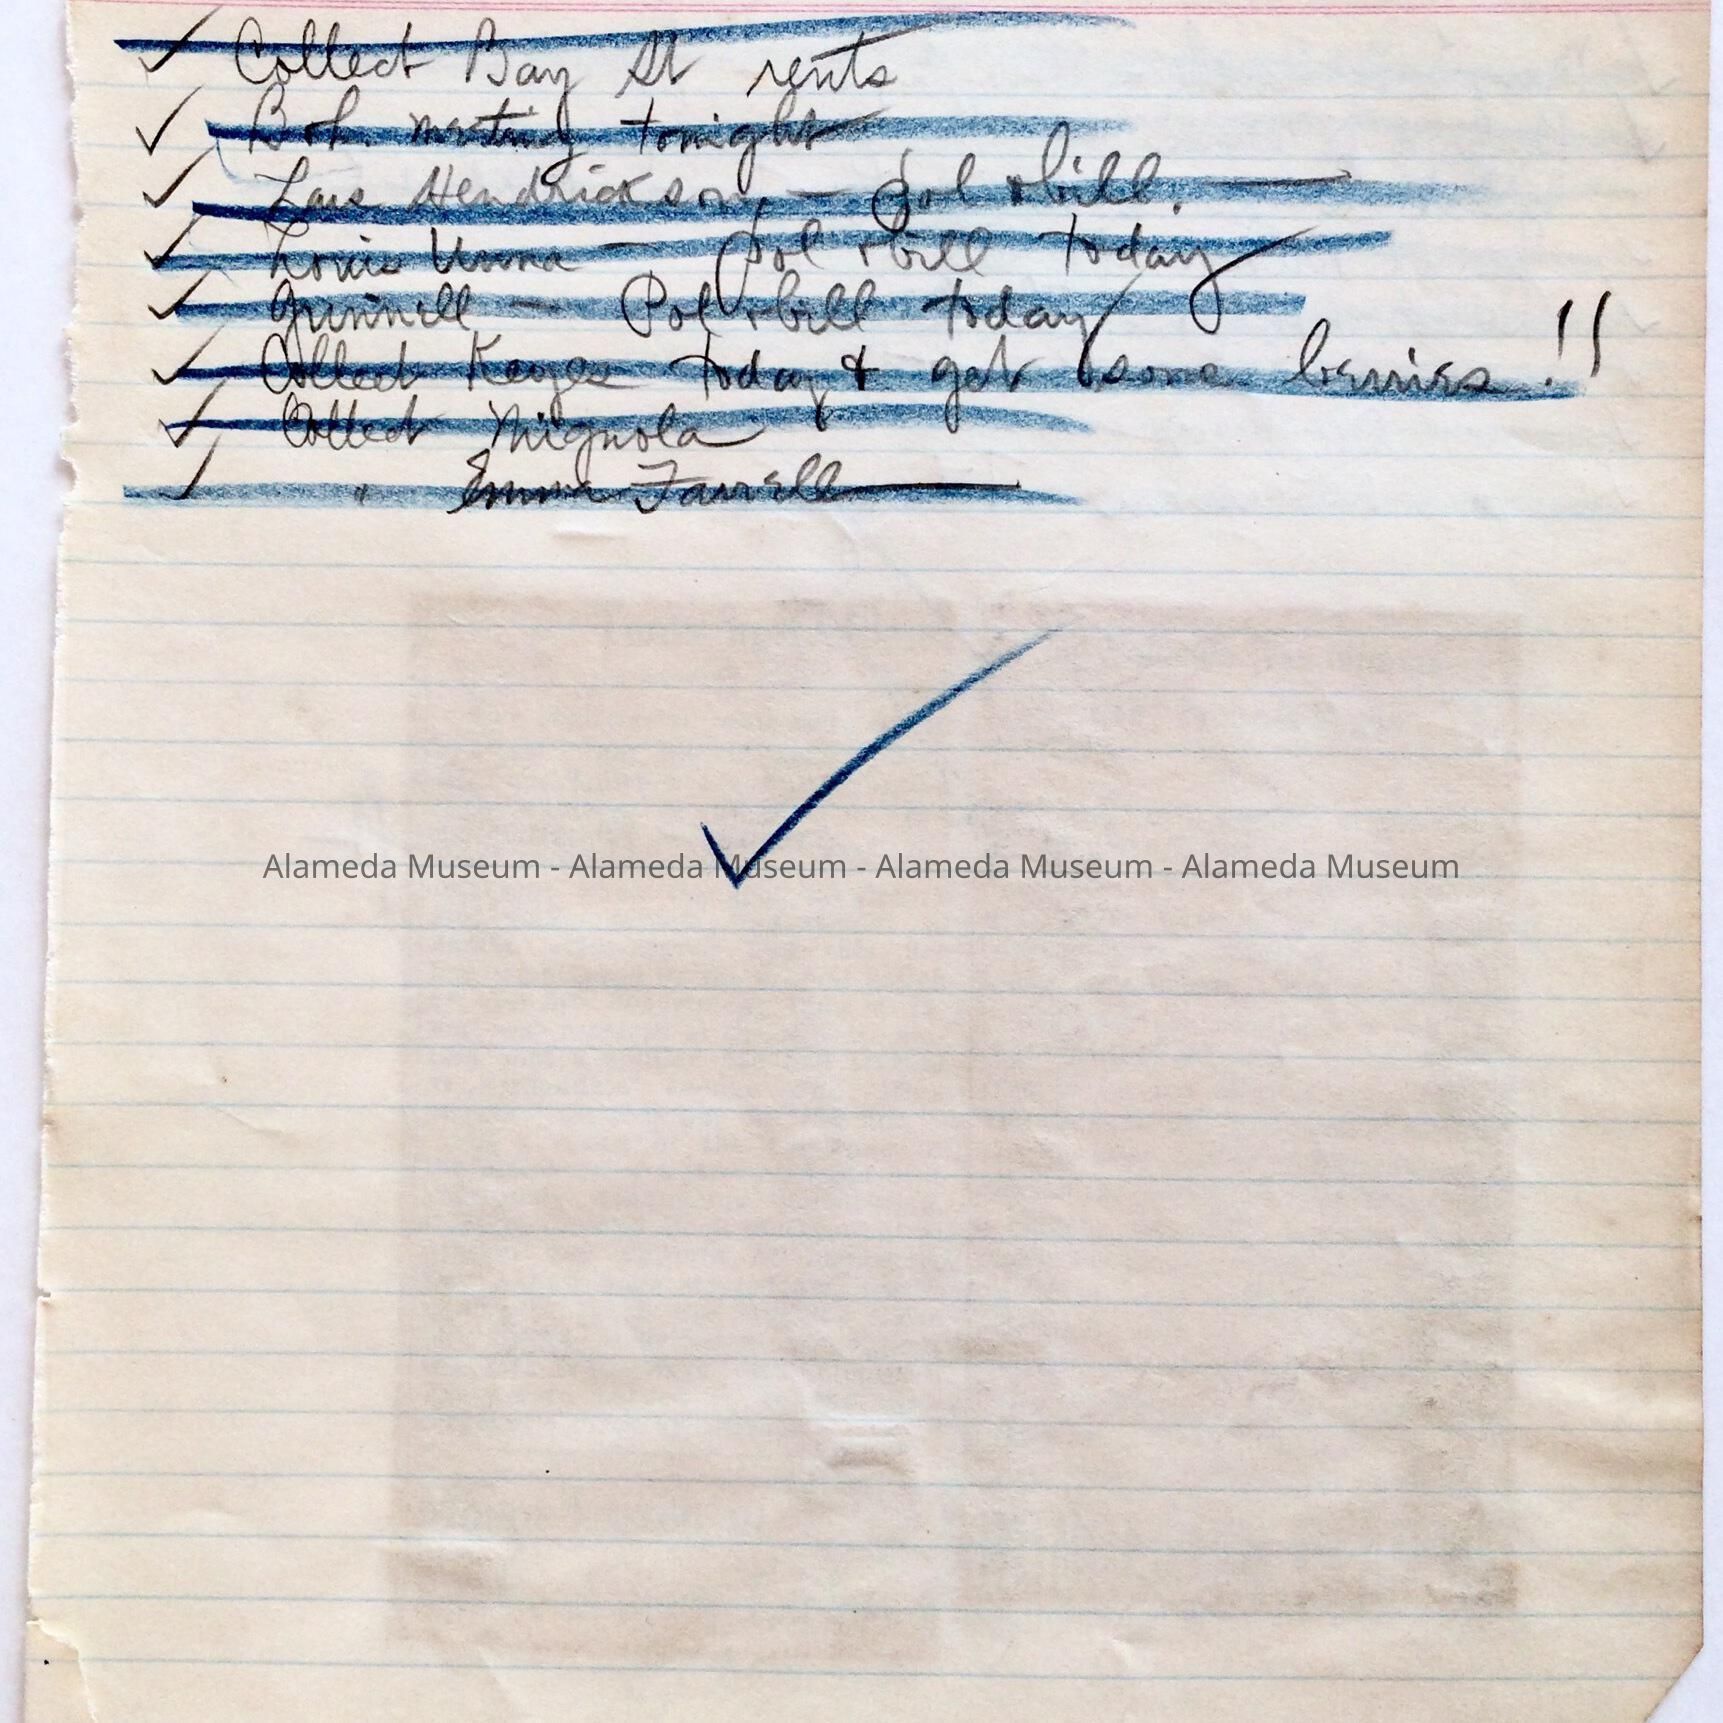 Collect Bay St rents
meeting tonight
Hendrickson — Pol & bill.
Louis Unna — Pol & bill today
Grinnell — Pol & bill today
Collect Keyes today & get some berries!!
Collect Mignola
" Emma Farrell
Alameda Museum - Alameda Museum - Alameda Museum - Alameda Museum